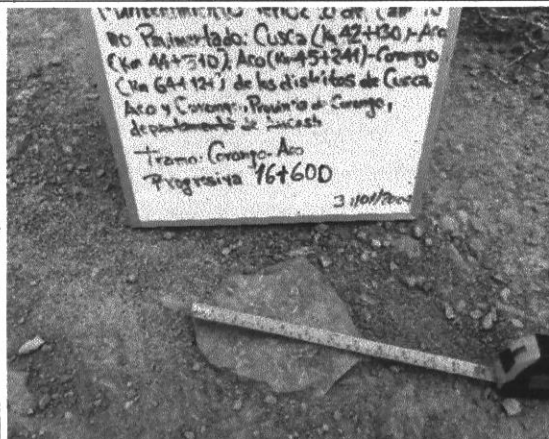 no Pavimentado: Cusca (km 42+130)-Aco
(km 44+310), Aco (km 45+241)-Corongo
(km 64+121) de los distritos de Cusca,
Aco y Corongo, Provincia de Corongo,
departamento de Ancash
Tramo: Corongo-Aco
Progresiva 16+600